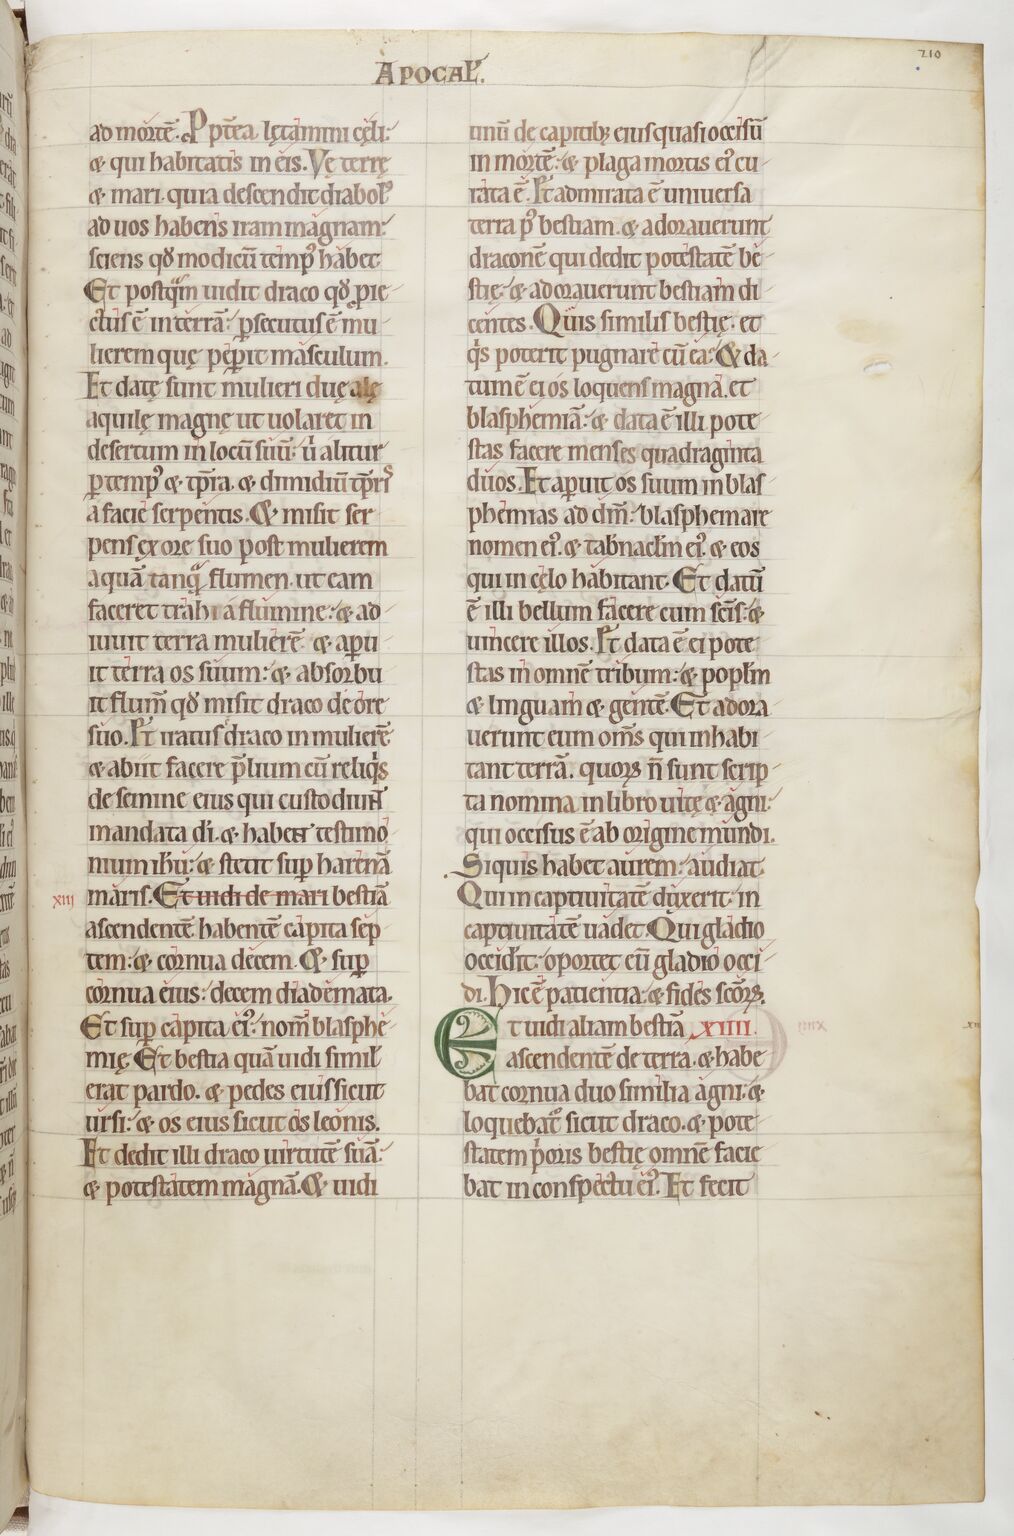 APOCAL̄.
210
ad mortē. Pp̄tea lętamini cęli:
& qui habitatis in eis. Vę terrę
& mari. quia descendit diabol᷒
ad uos habens iram magnam:
sciens qđ modicū temp᷒ habet
Et postq̄m uidit draco qđ pie
ctus ē in terrā: ꝑsecutus ē mu
lierem quę peꝑit masculum.
Et datę sunt mulieri duę alę
aquilę magnę ut uolaret in
desertum in locū suū: ù alitur
ꝑ temp᷒ & tp̄ra. & dimidiū tp̄ris
a facie serpentis. & misit ser
pens ex ore suo post mulierem
aquā tanquā flumen. ut eam
faceret trahi a flumine: & ad
iuuit terra mulierē. & aꝑu
it terra os suum: & absorbu
it flum̄ qđ misit draco de ore
suo. Et iratus ē draco in mulierē
& abiit facere p̄lium cū reliqͥs
de semine eius qui custodiunt
mandata dī. & habent testimo
nium ihū: & stetit suꝑ harenā
xiii
maris. Et uidi de mari bestiā
ascendentē. habentē capita sep
tem: & cornua decem. & suꝑ
cornua eius: decem diademata.
Et suꝑ capita ei᷒: nom̄ blasphe
mię. Et bestia quā uidi simił
erat pardo. & pedes eius sicut
ursi: & os eius sicut os leonis.
Et dedit illi draco uirtutē suā:
& potestatem magnā. & uidi
unū de capitib; eius quasi occisū
in mortē: & plaga mortis ei᷒ cu
rata ē. Et admirata ē uniuersa
terra p᷒ bestiam. & adorauerunt
draconē qui dedit potestatē be
stię: & adorauerunt bestiam di
centes. Quis similis bestię. et
qͥs poterit pugnare cū ea: & da
tum ē ei os loquens magna. et
blasphemiā: & data ē illi pote
stas facere menses quadraginta
duos. Et aperuit os suum in blas
phemias ad dm̄: blasphemare
nomen ei᷒. & tab̄nac̄lm ei᷒. & eos
qui in cęlo habitant. Et datū
ē illi bellum facere cum sc̄is: &
uincere illos. Et data ē ei pote
stas in omnē tribum: & popl̄m
& linguam & gentē. Et adora
uerunt eum om̄s qui inhabi
tant terrā. quoꝝ n̄ sunt scrip
ta nomina in libro uitę & agni:
qui occisus ē ab origine mundi.
Siquis habet aurem: audiat.
Qui in captiuitatē duxerit. in
captiuitatē uadet. Qui gladio
occid̄it: oportet eū gladio occi
di. Hic ē patientia: & fides sc̄oꝝ.
Et uidi aliam bestiā XIIII.
ascendentē de terra. & habe
bat cornua duo similia agni. &
loquebat᷑ sicut draco. & pote
statem pͥoris bestię omnē facie
bat in conspectu ei᷒. Et fecit